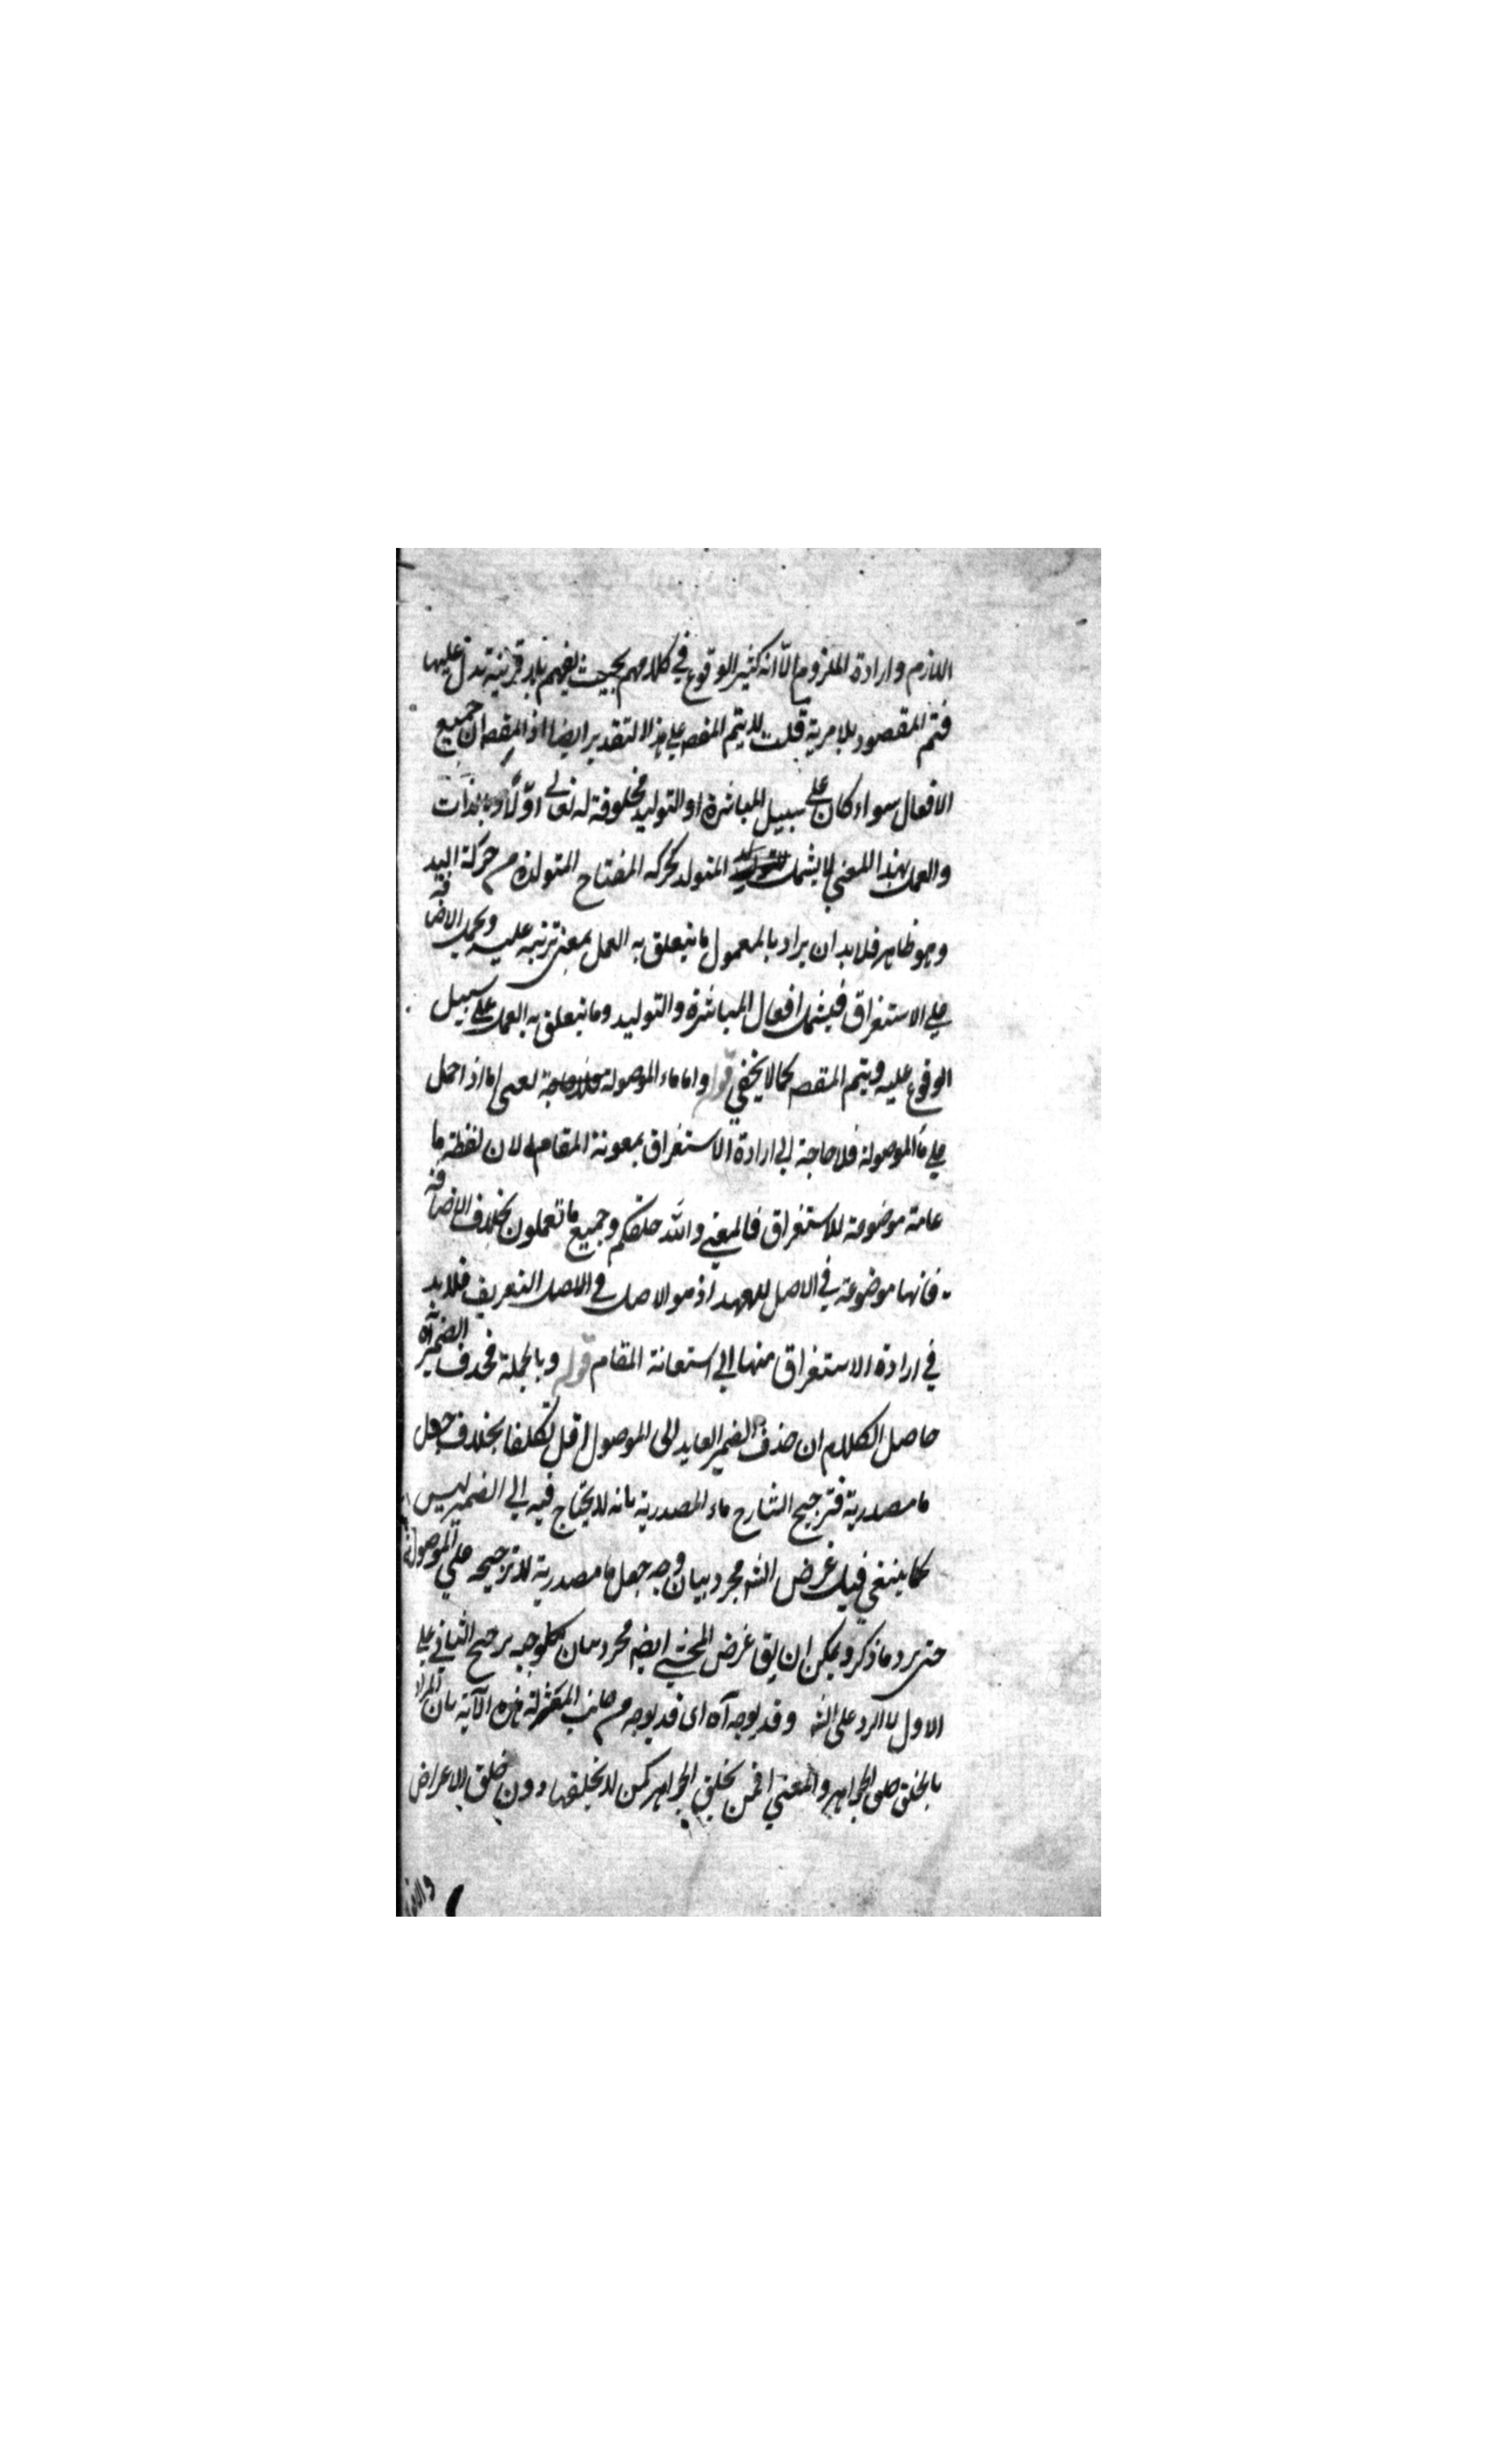 اللازم وارادة الملزوم الا انه كثير الوقوع في كلامهم بحيث يفهم بلا قرينة تدل عليها
فتم المقصود بلا مرية قلت لا يتم المقصه علي هذا التقدير ايضا اذ المقصه ان جميع
الافعال سواء كان علي سبيل المباشرة او التوليد مخلوقة له تعالي اولا وبالذات
والعمل بهذا المعني لا يشمل المتولد كحركه المفتاح المتولدة من حركة اليد
وهو ظاهر فلا بد ان يراد بالمعمول ما يتعلق به العمل بمعني ترتبه عليه ويحمل الاضافة
علي الاستغراق فيشمل افعال المباشرة والتوليد وما يتعلق به العمل علي سبيل
الوقوع عليه ويتم المقصه كما لا يخفي قوله واما ماء الموصولة فلا حاجة يعني اما اذا حمل
علي ما الموصولة فلا حاجة الي ارادة الاستغراق بمعونة المقام لان لفظة ما
عامة موضوعة للاستغراق فالمعني والله خلقكم وجميع ما تعملون بخلاف الاضافة
فانها موضوعة في الاصل للعهد اذ هو الاصل في الاصل التعريف فلا بد
في ارادة الاستغراق منها الي استعانة المقام قوله وبالجملة فحذف الضمير آه
حاصل الكلام ان حذف الضمير العايد الى الموصول اقل تكلفا بخلاف جعل
ما مصدرية فترجيح الشارح ماء المصدرية بانه لا يحتاج فيه الي الضمير ليس
كما ينبغي قيل غرض الشه مجرد بيان وجه جعل ما مصدرية لا ترجيحه علي الموصولة
حتى يرد ما ذكر ويمكن ان يق غرض المحشي ايضه مجرد بيان وجه ترجيح الثاني علي
الاول لا الرد على الشه وقد يوجه آه اى قد يوجه من جانب المعتزلة هذه الآية بان المراد
بالخلق خلق الجواهر والمعني افمن يخلق الجواهر كمن لا يخلقها دون خلق الاعراض